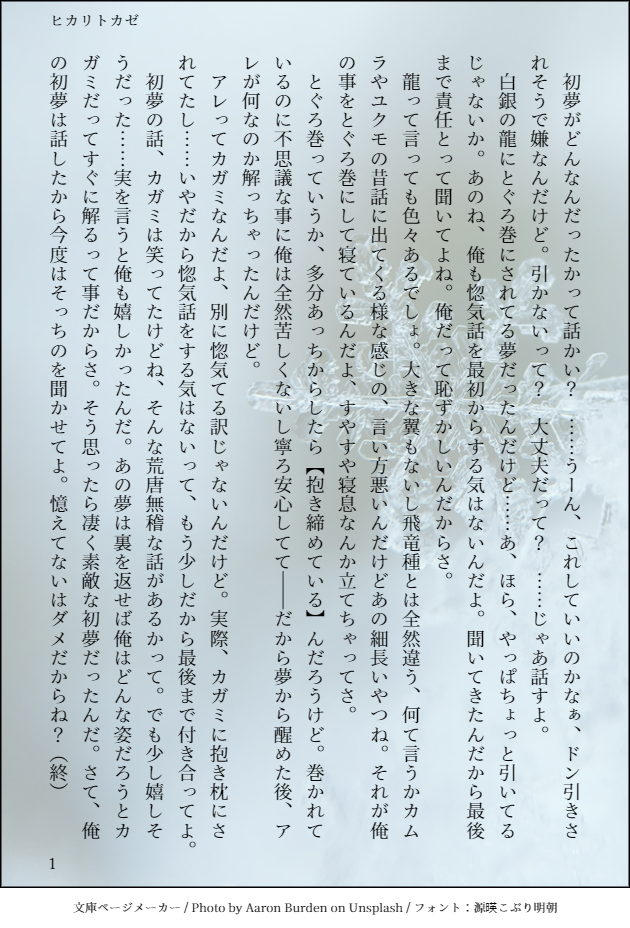 ヒカリトカゼ
　初夢がどんなんだったかって話かい？　……うーん、これしていいのかなぁ、ドン引きさ
れそうで嫌なんだけど。引かないって？　大丈夫だって？　……じゃあ話すよ。
　白銀の龍にとぐろ巻にされてる夢だったんだけど……あ、ほら、やっぱちょっと引いてる
じゃないか。あのね、俺も惚気話を最初からする気はないんだよ。聞いてきたんだから最後
まで責任とって聞いてよね。俺だって恥ずかしいんだからさ。
　龍って言っても色々あるでしょ。大きな翼もないし飛竜種とは全然違う、何て言うかカム
ラやユクモの昔話に出てくる様な感じの、言い方悪いんだけどあの細長いやつね。それが俺
の事をとぐろ巻にして寝ているんだよ、すやすや寝息なんか立てちゃってさ。
　とぐろ巻っていうか、多分あっちからしたら【抱き締めている】んだろうけど。巻かれて
いるのに不思議な事に俺は全然苦しくないし寧ろ安心してて――だから夢から醒めた後、ア
レが何なのか解っちゃったんだけど。
　アレってカガミなんだよ、別に惚気てる訳じゃないんだけど。実際、カガミに抱き枕にさ
れてたし……いやだから惚気話をする気はないって、もう少しだから最後まで付き合ってよ。
　初夢の話、カガミは笑ってたけどね、そんな荒唐無稽な話があるかって。でも少し嬉しそ
うだった……実を言うと俺も嬉しかったんだ。あの夢は裏を返せば俺はどんな姿だろうとカ
ガミだってすぐに解るって事だからさ。そう思ったら凄く素敵な初夢だったんだ。さて、俺
の初夢は話したから今度はそっちのを聞かせてよ。憶えてないはダメだからね？（終）
1
文庫ページメーカー / Photo by Aaron Burden on Unsplash / フォント：源暎こぶり明朝